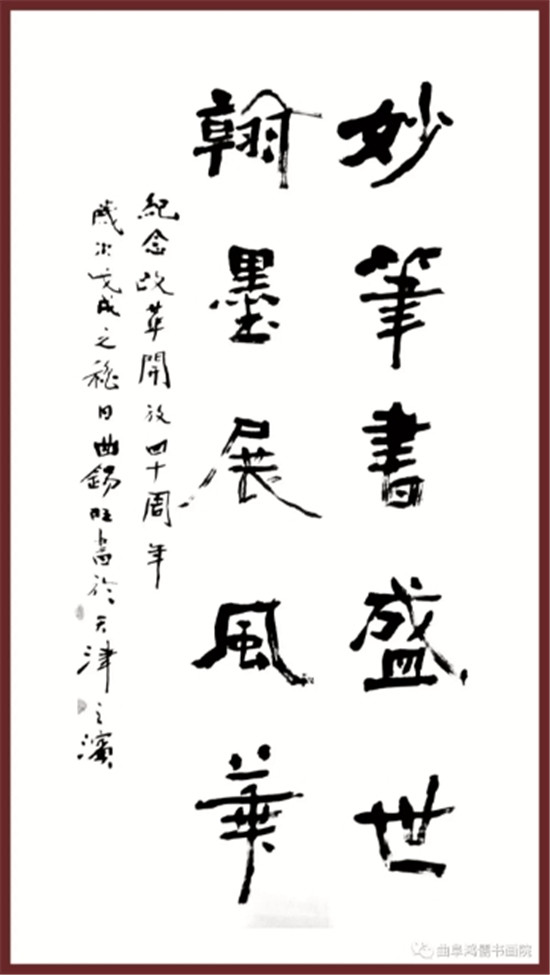 妙筆書盛世
翰墨展風華
紀念改革開放四十周年
歲次戊戌之穐月曲錫旺書於天津之濱
曲阜鸿儒书画院